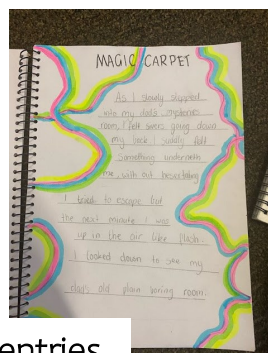 MAGIC CARPET
As I slowly stepped
into my dad's mysteries
room, I felt shivers going down
my back. I suddly felt
Something underneath
me, with out hesitating
I tried to escape but
the next minute I was
up in the air like flash.
I looked down to see my
dad's old plain boring room.
entries